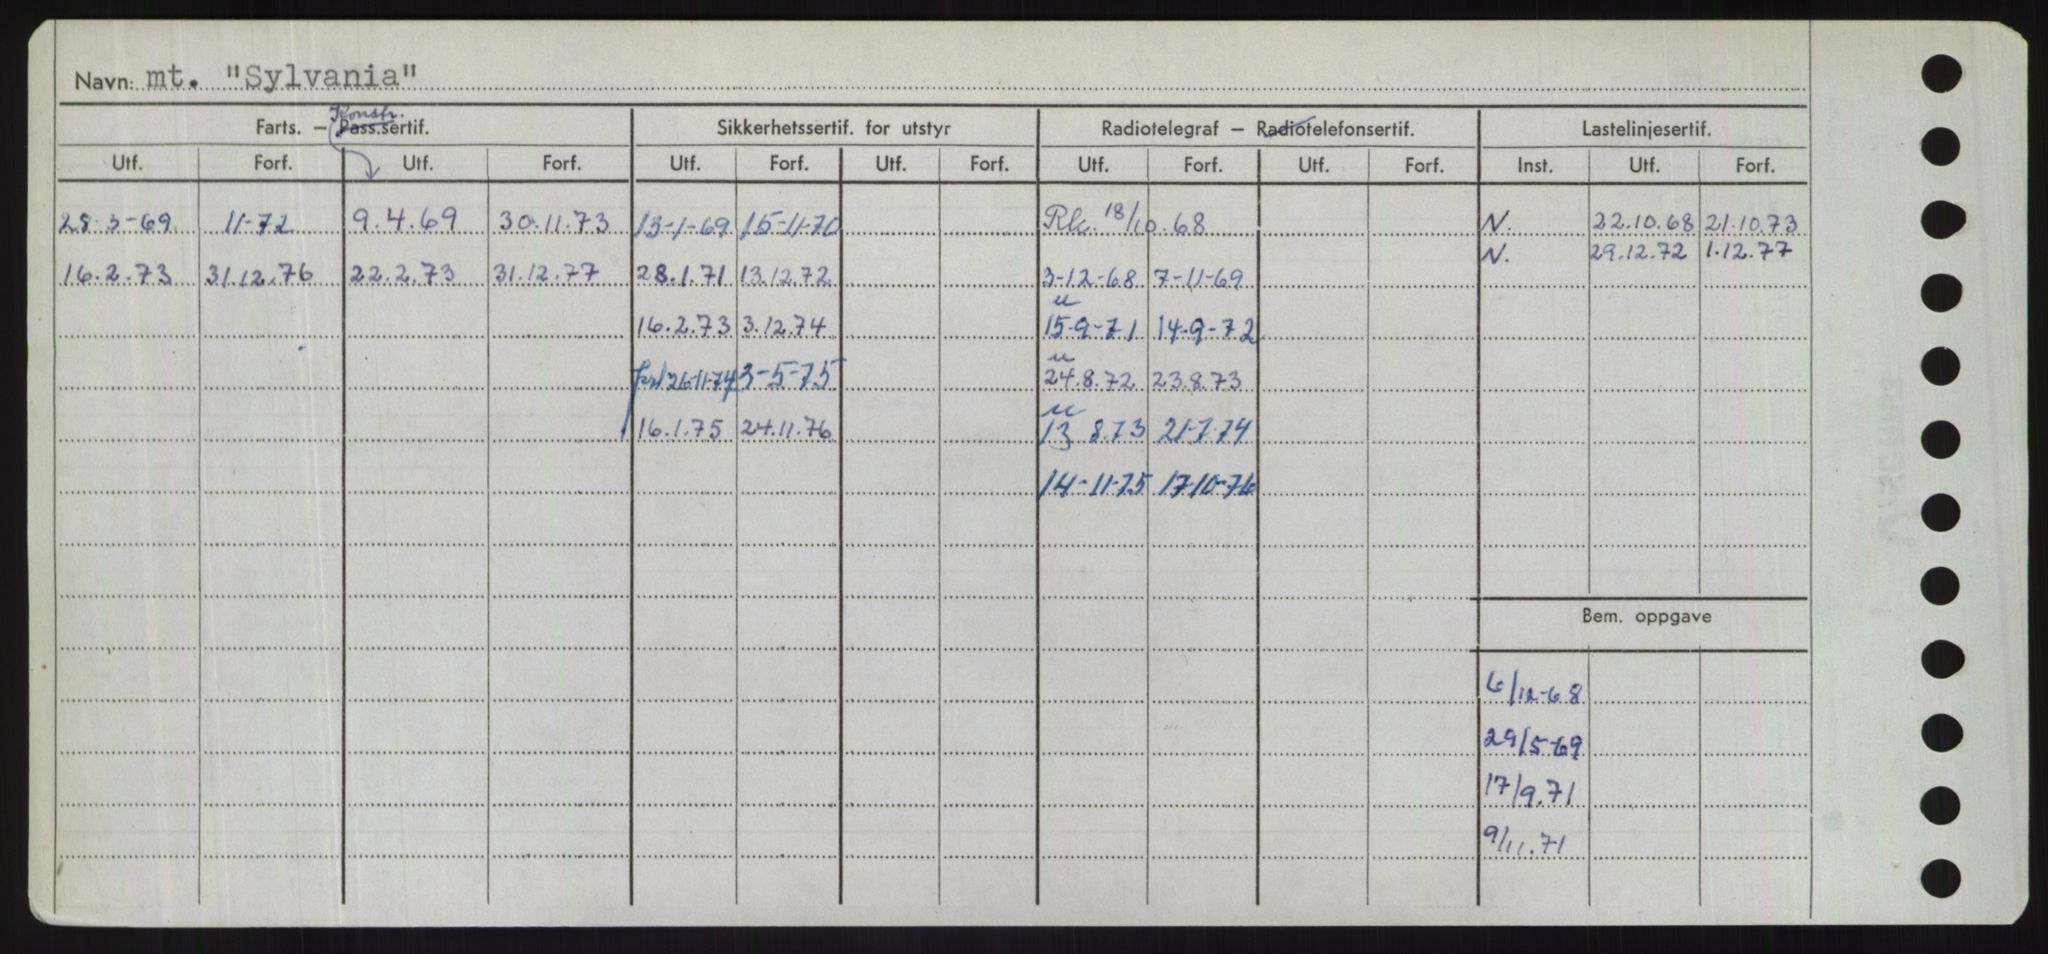 Navn: mt. "Sylvania"
Konstr.
Farts. – Pass.sertif. Sikkerhetssertif. for utstyr Radiotelegraf – Radiotelefonsertif. Lastelinjesertif.
Utf. Forf. Utf. Forf. Utf. Forf. Utf. Forf. Utf. Forf. Utf. Forf. Inst. Utf. Forf.
28-3-69 11-72 9.4.69 30.11.73 13-1-69 15-11-70 Rk. 18/10.68 N. 22.10.68 21.10.73
N. 29.12.72 1.12.77
16.2.73 31.12.76 22.2.73 31.12.77 28.1.71 13.12.72 3-12-68 7-11-69
u
16.2.73 3.12.74 15-9-71 14-9-72
u
26-11-74 3-5-75 24.8.72 23.8.73
u
16.1.75 24.11.76 13 8.73 21-7-74
14-11-75 17-10-76
Bem. oppgave
6/12-68
29/5-69
17/9.71
9/11.71